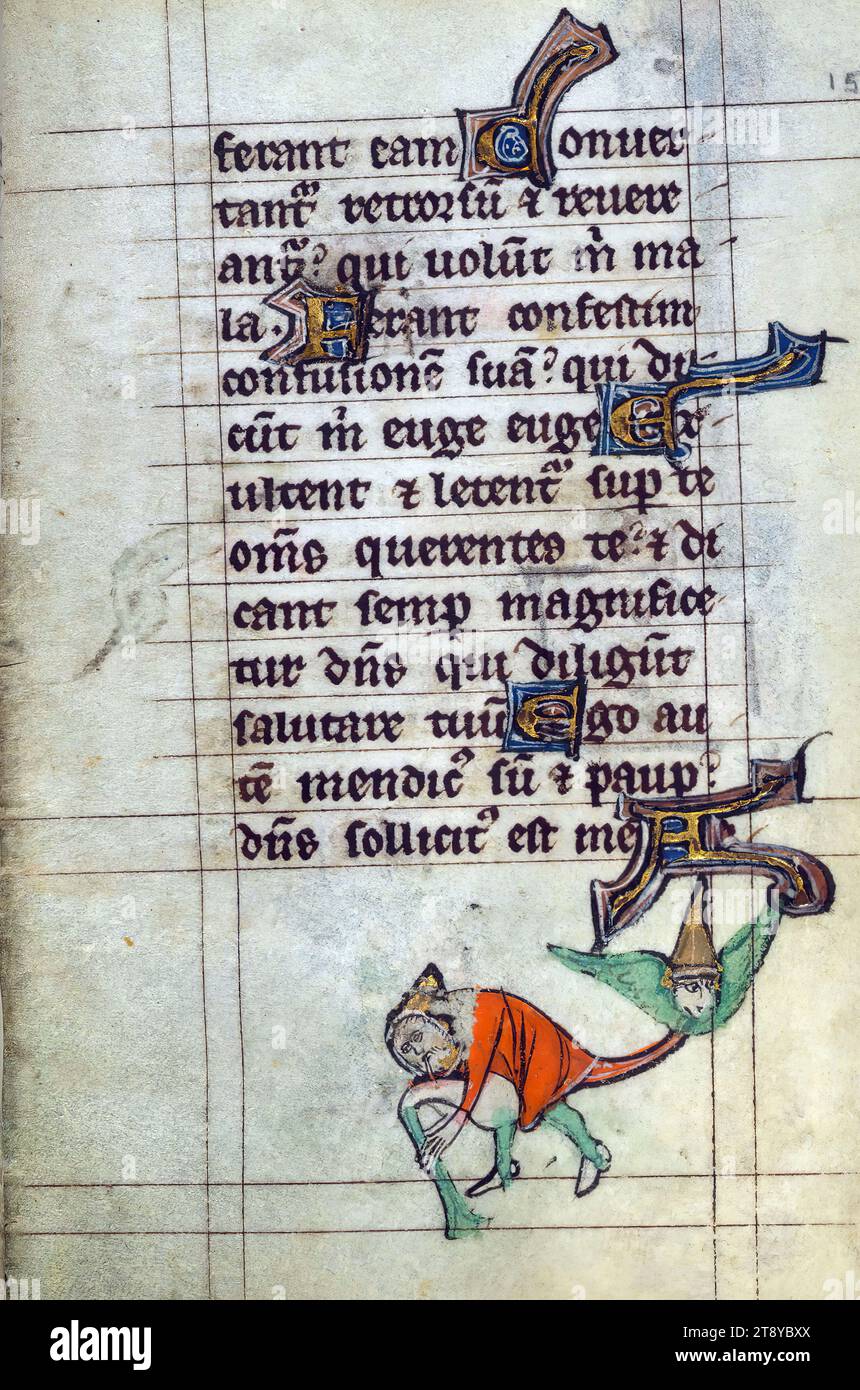 15
ferant eam Conuer
tantᷣ retrorsū ⁊ reuere
antᷣ? qui uolūt m̄ ma
la. Ferant confestim
confusionē suā? qui di
cūt m̄ euge euge Ex
ultent ⁊ letentᷣ suꝑ te
om̄s querentes te? ⁊ di
cant semꝑ magnifice
tur dn̄s qui diligūt
salutare tuū Ego au
tē mendicꝰ sū ⁊ pauꝑ?
dn̄s sollicitꝰ est me A
alamy
Image ID: 2T8YBXX
www.alamy.com